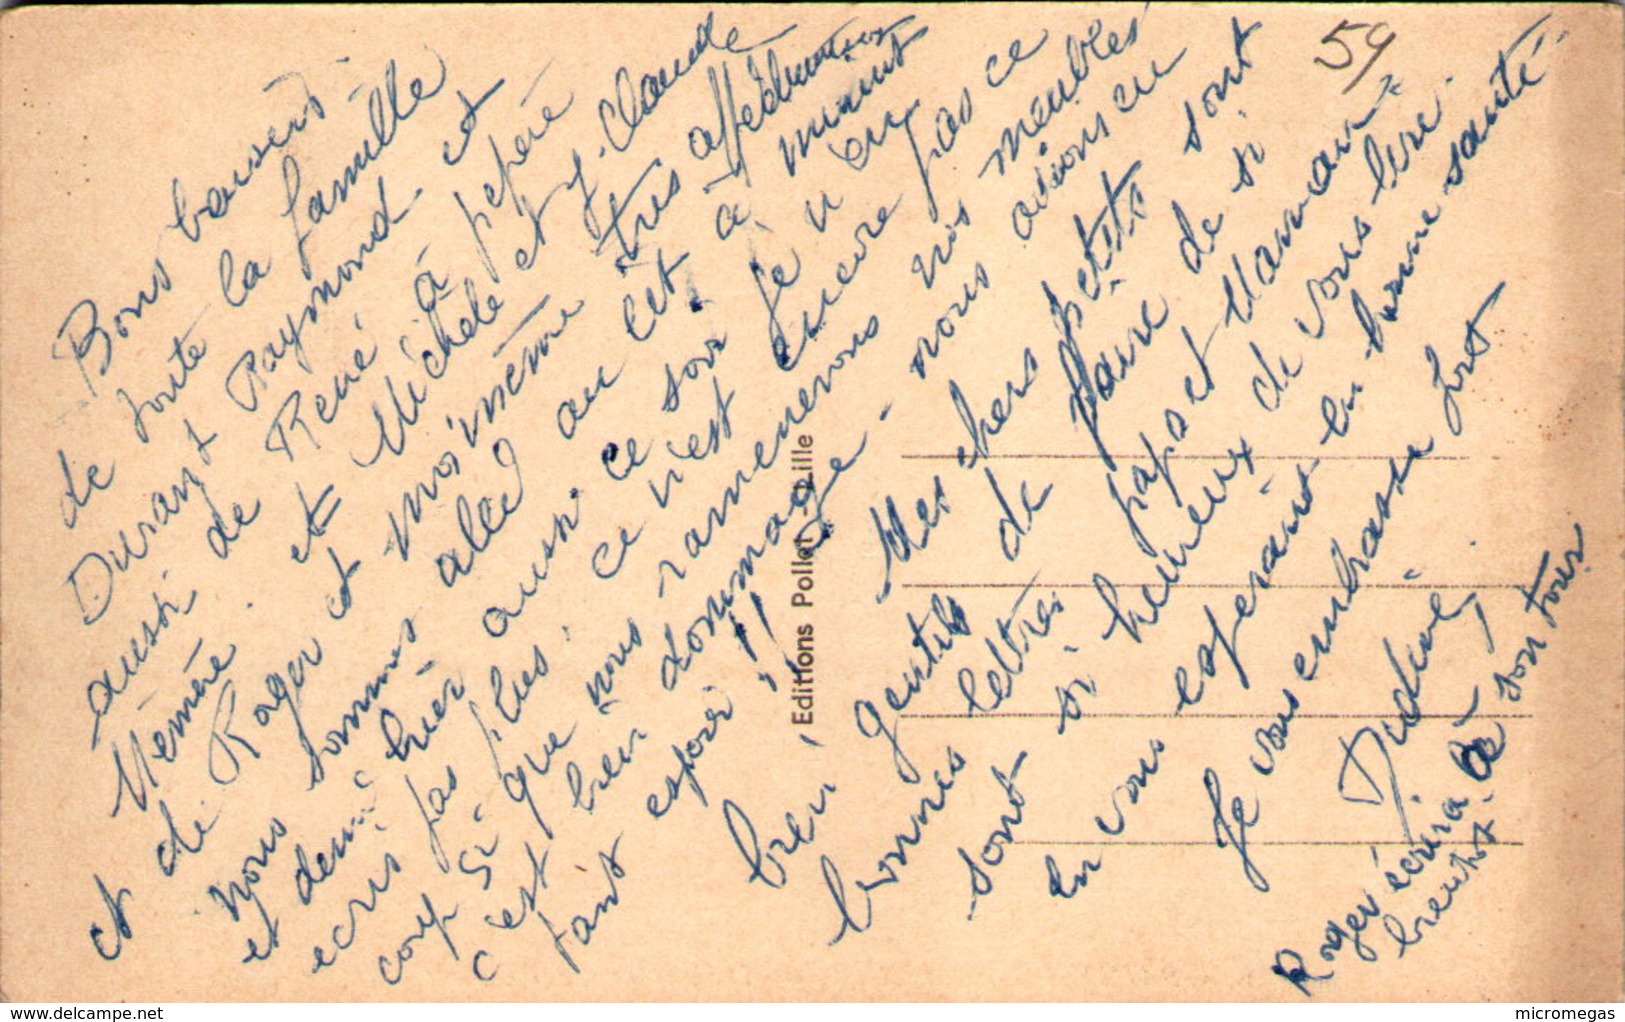 59
Bons baisers
de toute la famille
Durant Raymond et
aussi de René à pépère
Mémère. et Michèle et J-Claude
et de Roger et moi même très affectueux
nous sommes allé au lit à minuit
et demi hier aussi. ce soir je n'en
ecris pas plus. ce n'est encore pas ce
coup si que nous ramenerons nos meubles
c'est bien dommage - nous avions eu
tant espoir !!
Mes chers petits sont
bien gentils de faire de si
bonnes lettres papa et Maman
sont si heureux de vous lire.
En vous espérant en bonne santé
Je vous embrasse fort
Roger écrira à son tour
bientôt.
Editions Pollet Lille
www.delcampe.net
micromegas